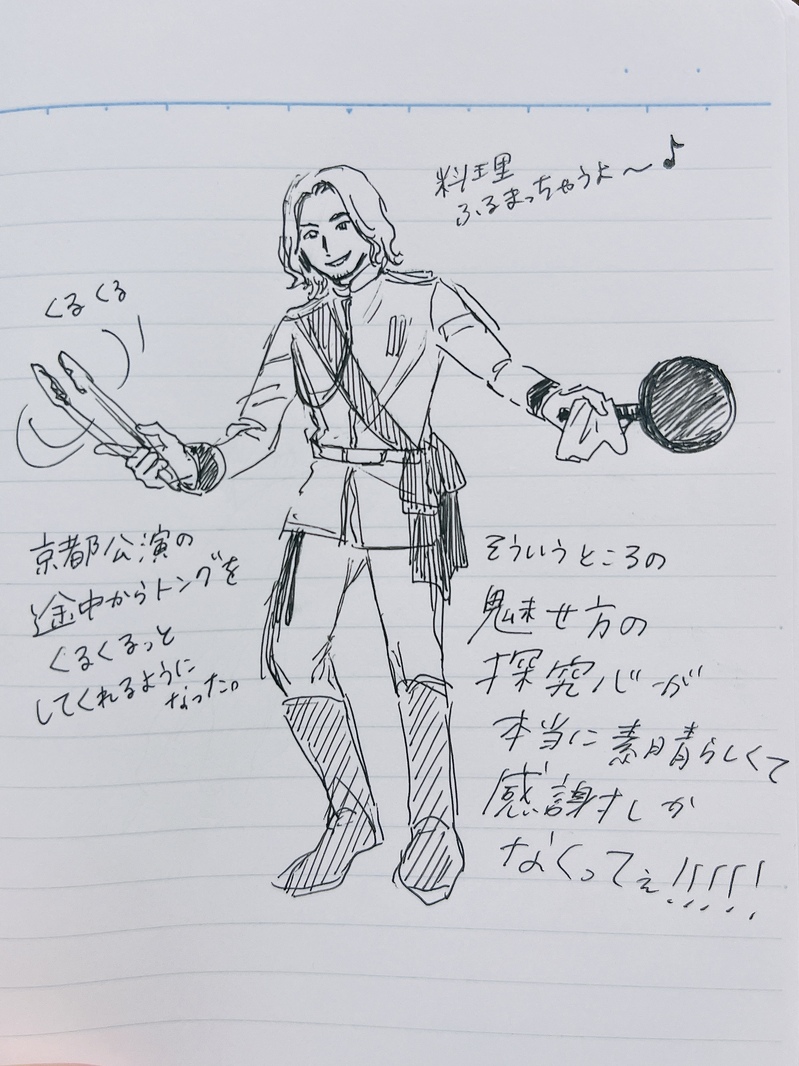 料理
ふるまっちゃうよ～♪
くるくる
京都公演の
途中からトングを
くるくるっと
してくれるように
なった。
そういうところの
魅せ方の
探究心が
本当に素晴らしくて
感謝しか
なくってぇ!!!!!